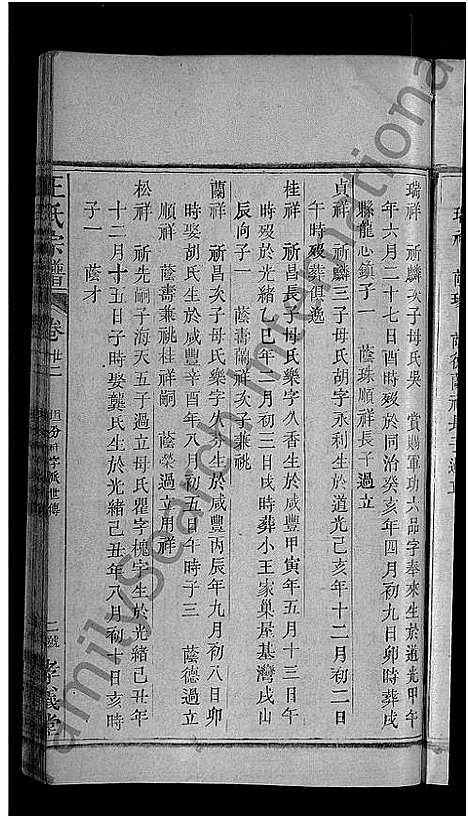 瑞祥 祈麟次子母氏吳 賞勳軍功六品字奉來生於道光甲午
年六月二十七日酉時歿於同治癸亥年四月初九日卯時葬戌
縣龍心鎮子一 蔭珠順祥長子過立
貞祥 祈麟三子母氏胡字永利生於道光己亥年十二月初二日
午時歿葬俱逸
桂祥 祈昌長子母氏樂字久香生於咸豐甲寅年五月十三日午
時歿於光緒乙巳年二月初三日戌時葬小王家巢屋基灣戌山
辰向子一 蔭壽蘭祥次子兼祧
蘭祥 祈昌次子母氏樂字久芬生於咸豐丙辰年九月初八日卯
時娶胡氏生於咸豐辛酉年八月初五日午時子三 蔭德過立
順祥 蔭壽兼祧桂祥嗣 蔭榮過立用祥
松祥 祈先嗣子海天五子過立母氏瞿字槐字生於光緒己丑年
十二月十五日子時娶龔氏生於光緒己丑年八月初十日亥時
子一 蔭才
王氏宗譜 卷廿二 二號 孝義堂
FamilySearch International